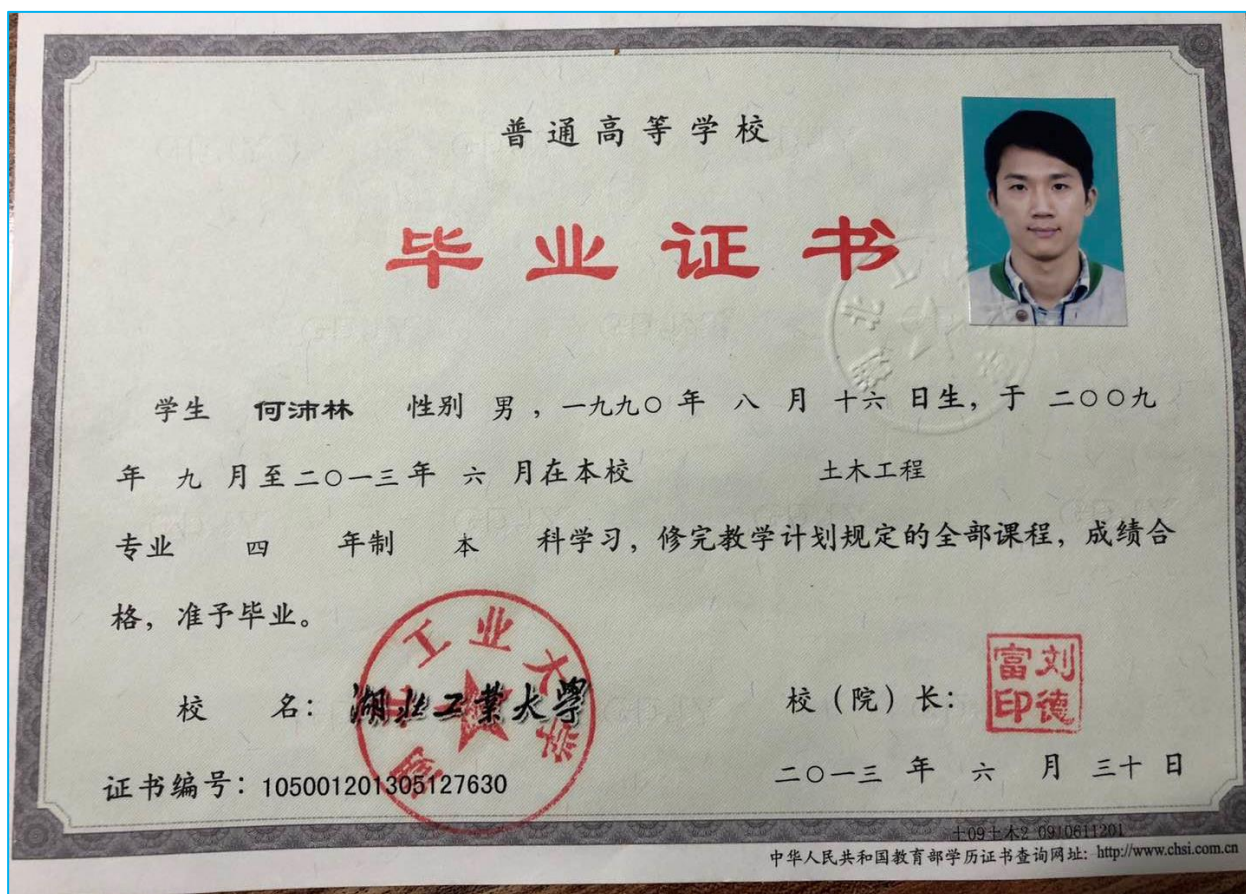 普通高等学校
毕业证书
学生 何沛林 性别 男，一九九〇年 八 月 十六 日生，于 二〇〇九
年 九 月至二〇一三年 六 月在本校 土木工程
专业 四 年制 本 科学习，修完教学计划规定的全部课程，成绩合
格，准予毕业。
湖北工业大学
校 名：湖北工業大學
校（院）长：
刘德富印
证书编号：105001201305127630
二〇一三 年 六 月 三十 日
土09土木2 0910611201
中华人民共和国教育部学历证书查询网址：http://www.chsi.com.cn